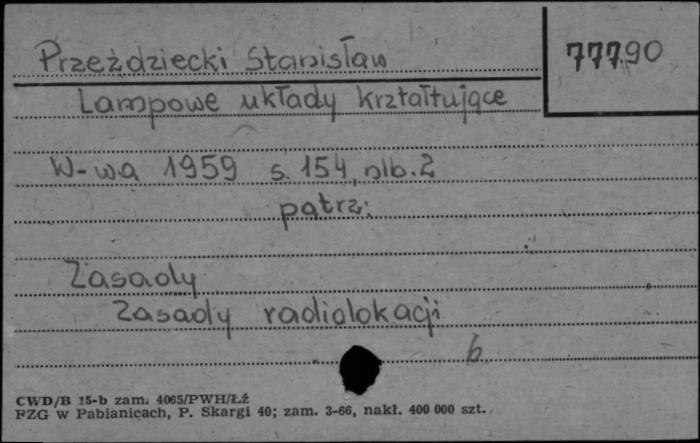 Przeździecki Stanisław
77790
Lampowe układy krztałtujące
W-wa 1959 s. 154, nlb. 2
patrz:
Zasady
Zasady radiolokacji
b
CWD/B 15-b zam. 4065/PWH/Łź
PZG w Pabianicach, P. Skargi 40; zam. 3-66, nakł. 400 000 szt.